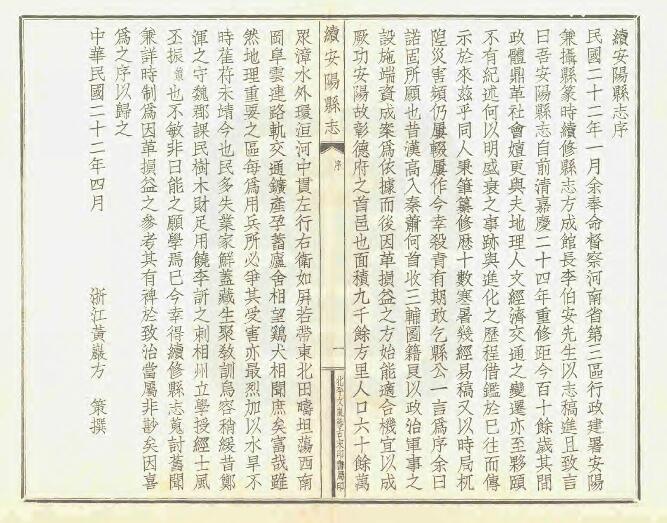 續安陽縣志序
民國二十二年一月余奉命督察河南省第三區行政建署安陽
兼攝縣篆時續修縣志方成館長李伯安先生以志稿進且致言
曰吾安陽縣志自前清嘉慶二十四年重修距今百十餘歲其間
政體鼎革社會嬗更與夫地理人文經濟交通之變遷亦至夥頤
不有紀述何以明盛衰之事跡與進化之歷程借鑑於已往而傳
示於來茲乎同人秉筆纂修歷十數寒暑幾經易稿又以時局杌
隉災害頻仍屢輟屢作今幸殺青有期敢乞縣公一言爲序余曰
諾固所願也昔漢高入秦蕭何首收三輔圖籍良以政治軍事之
設施端資成案爲依據而後因革損益之方始能適合機宜以成
厥功安陽故彰德府之首邑也面積九千餘方里人口六十餘萬
續安陽縣志
序
一
北平文嵐簃古宋印書局印
眾漳水外環洹河中貫左行右衛如屏若帶東北田疇坦蕩西南
岡阜雲連路軌交通鑛產孕蓄廬舍相望鷄犬相聞庶矣富哉雖
然地理重要之區每爲用兵所必爭其受害亦最烈加以水旱不
時萑苻未靖今也民多失業家鮮蓋藏生聚教訓烏容稍緩昔鄭
渾之守魏郡課民樹木財足用饒李訢之刺相州立學授經士風
丕振 也不敏非曰能之願學焉已今幸得續修縣志蒐討舊聞
兼詳時制爲因革損益之參考其有裨於致治當屬非尟矣因喜
爲之序以歸之
中華民國二十二年四月
浙江黃巖方 策撰